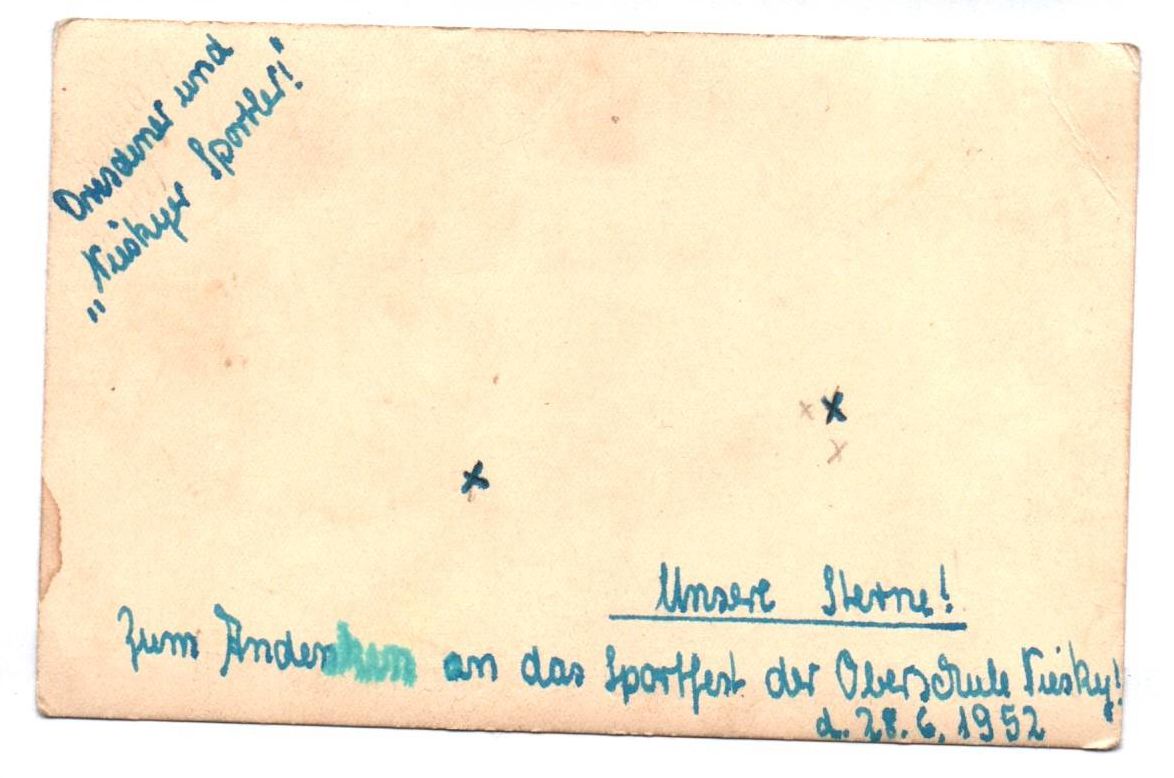 Dresdener und
„Nieskyer Sportler!"
x
x
x
x
Unsere Sterne!
Zum Andenken an das Sportfest der Oberschule Niesky!
d. 28. 6. 1952